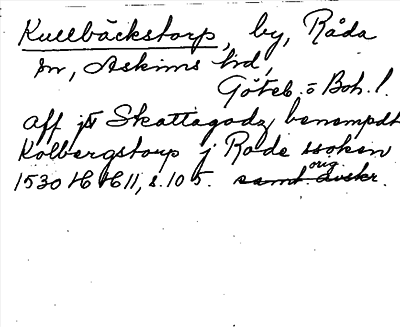 Kullbäckstorp, by, Råda
sn, Askims hd,
Göteb. o Boh. l.
aff jt Skattagodz benempdt
Kolbergstorp j Rade ssoken
1530 HH 11, s. 105. samt avskr.
orig.